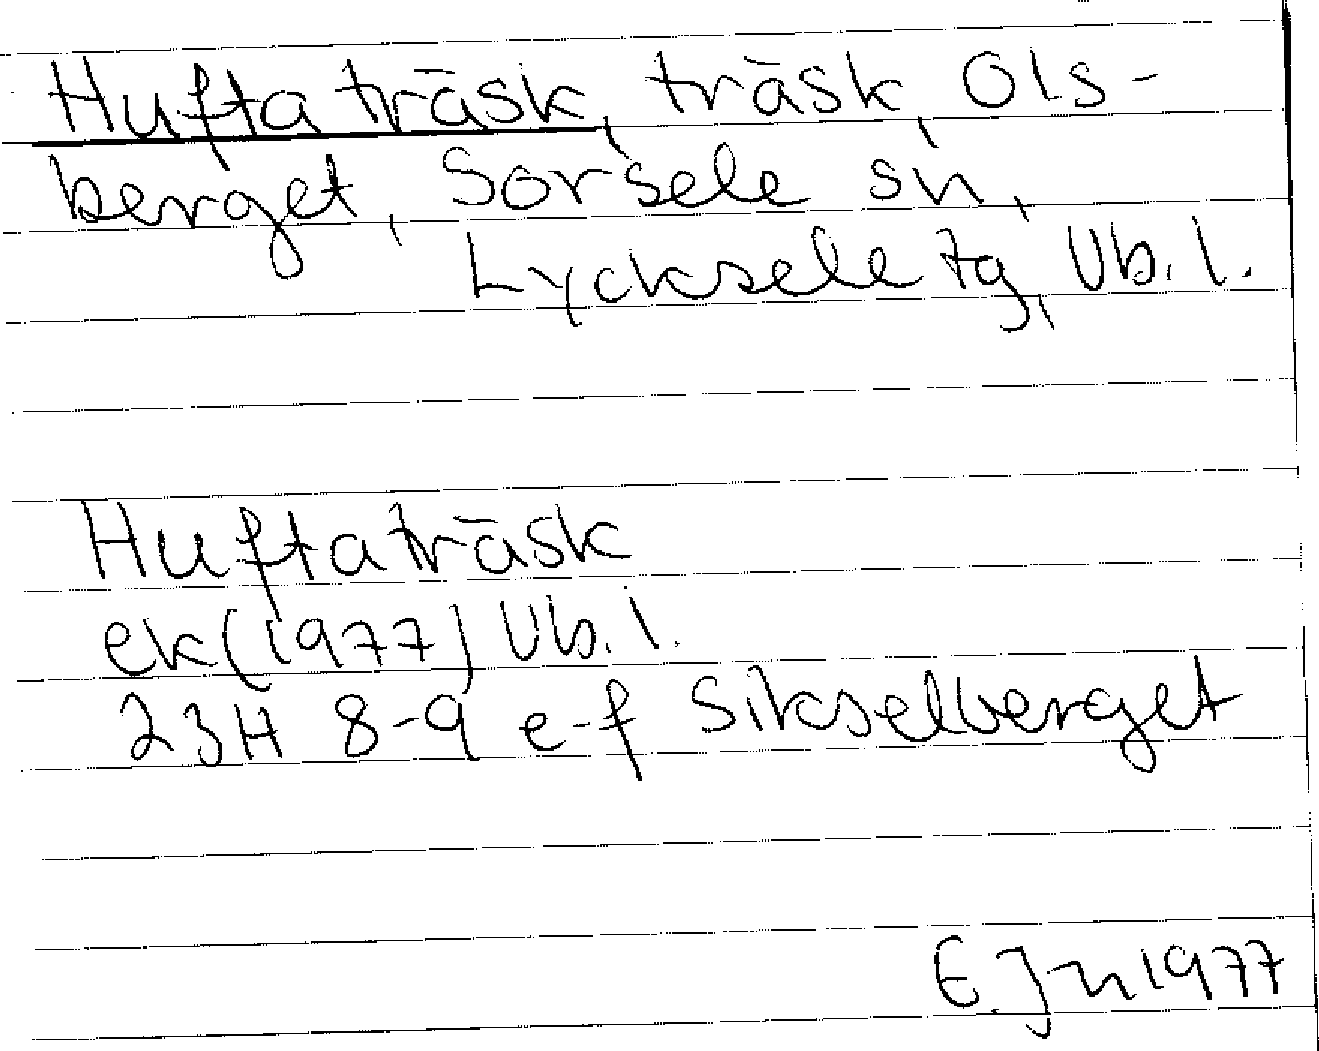 Huftaträsk, träsk, Ols-
berget, Sorsele sn,
Lycksele tg, Vb. l.
Huftaträsk
ek (1977) Vb. l.
23H 8-9 e-f Sikselberget
E. Jn 1977